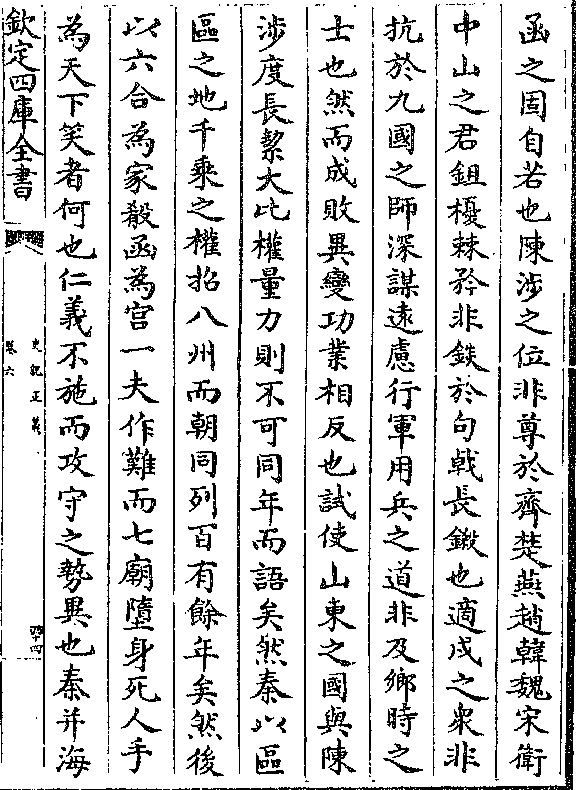 函之固自若也陳涉之位非尊於齊楚燕趙韓魏宋衛
中山之君鉏櫌棘矜非銕於句戟長鎩也適戍之衆非
抗於九國之師深謀逺慮行軍用兵之道非及鄉時之
士也然而成敗異變功業相反也試使山東之國與陳
涉度長絜大比權量力則不可同年而語矣然秦以區
區之地千乘之權招八州而朝同列百有餘年矣然後
以六合為家殽函為宫一夫作難而七廟墮身死人手
為天下笑者何也仁義不施而攻守之勢異也秦并海
欽定四庫全書
史記正義
卷六
四